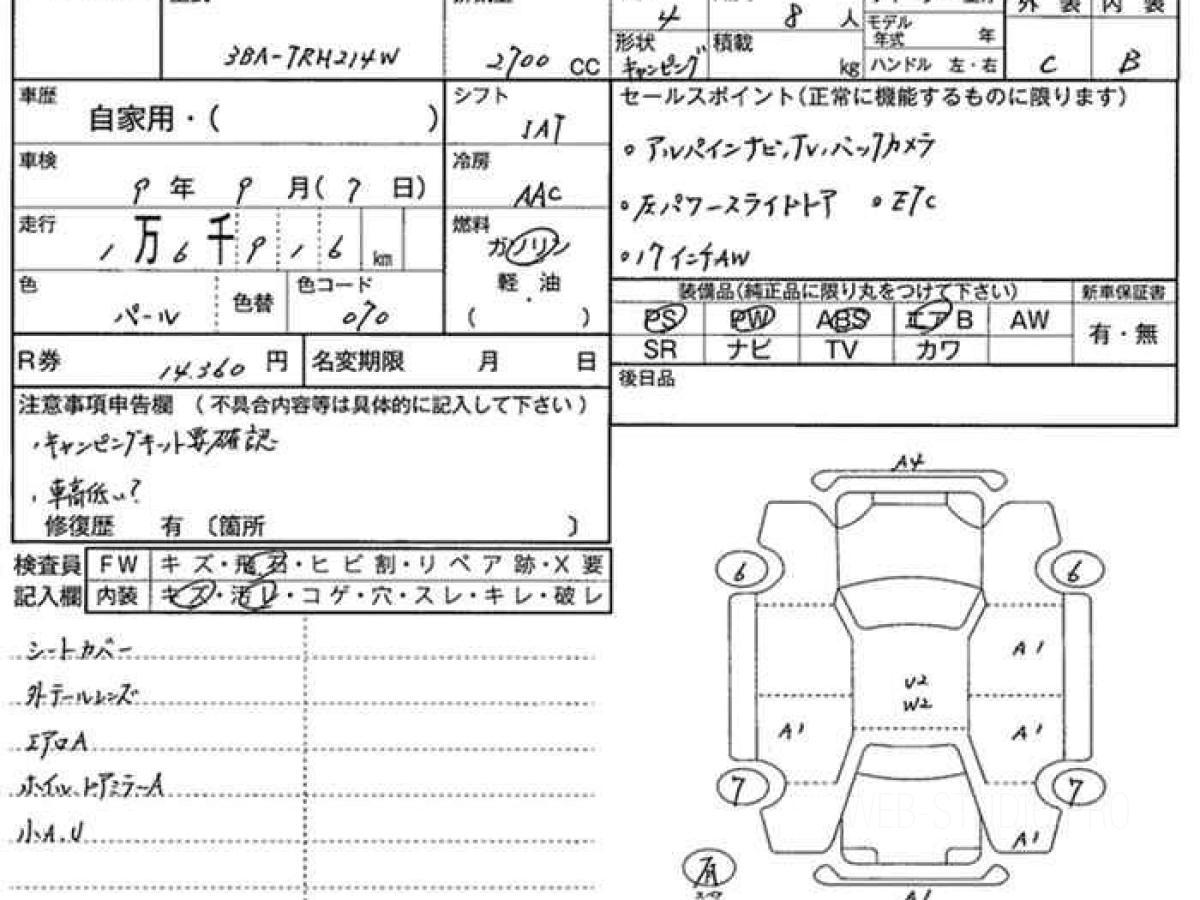 4
8 人
外 装 内 装
モデル
年式 年
3BA-TRH214W
2700 CC
形状
キャンピング
積載
kg
ハンドル 左・右
C
B
車歴
自家用・( )
シフト
IAT
セールスポイント(正常に機能するものに限ります)
車検
9 年 9 月( 7 日)
冷房
AAC
。アルパインナビ,TV,バックカメラ
走行
1 万 6 千 9 1 6 km
燃料
ガソリン
軽 油
・
( )
。左パワースライドドア 。ETC
。17インチAW
色
パール
色替
色コード
070
装備品(純正品に限り丸をつけて下さい)
新車保証書
PS PW ABS エアB AW
有・無
SR ナビ TV カワ
R券
14.360 円
名変期限 月 日
後日品
注意事項申告欄 (不具合内容等は具体的に記入して下さい)
・キャンピングキット要確認
・車高低い?
修復歴 有 〔箇所 〕
検査員
記入欄
FW キズ・飛石・ヒビ割・リペア跡・X要
内装 キズ・汚レ・コゲ・穴・スレ・キレ・破レ
シートカバー
外テールレンズ
エアロA
ホイル、ドアミラーA
小A.U
A4
6
6
A1
U2
W2
A1
A1
7
7
A1
有
スペア
A1
WEB-STUDIO.PRO